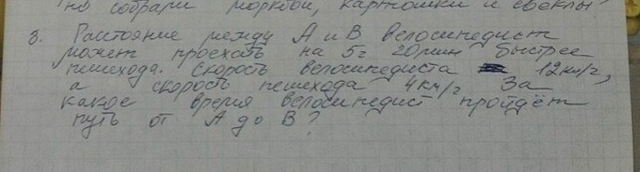 но собрали моркови, картошки и свеклы
3. Расстояние между А и В велосипедист
может проехать на 5ч 20мин быстрее
пешехода. Скорость велосипедиста 12км/ч,
а скорость пешехода 4км/ч За
какое время велосипедист пройдёт
путь от А до В?